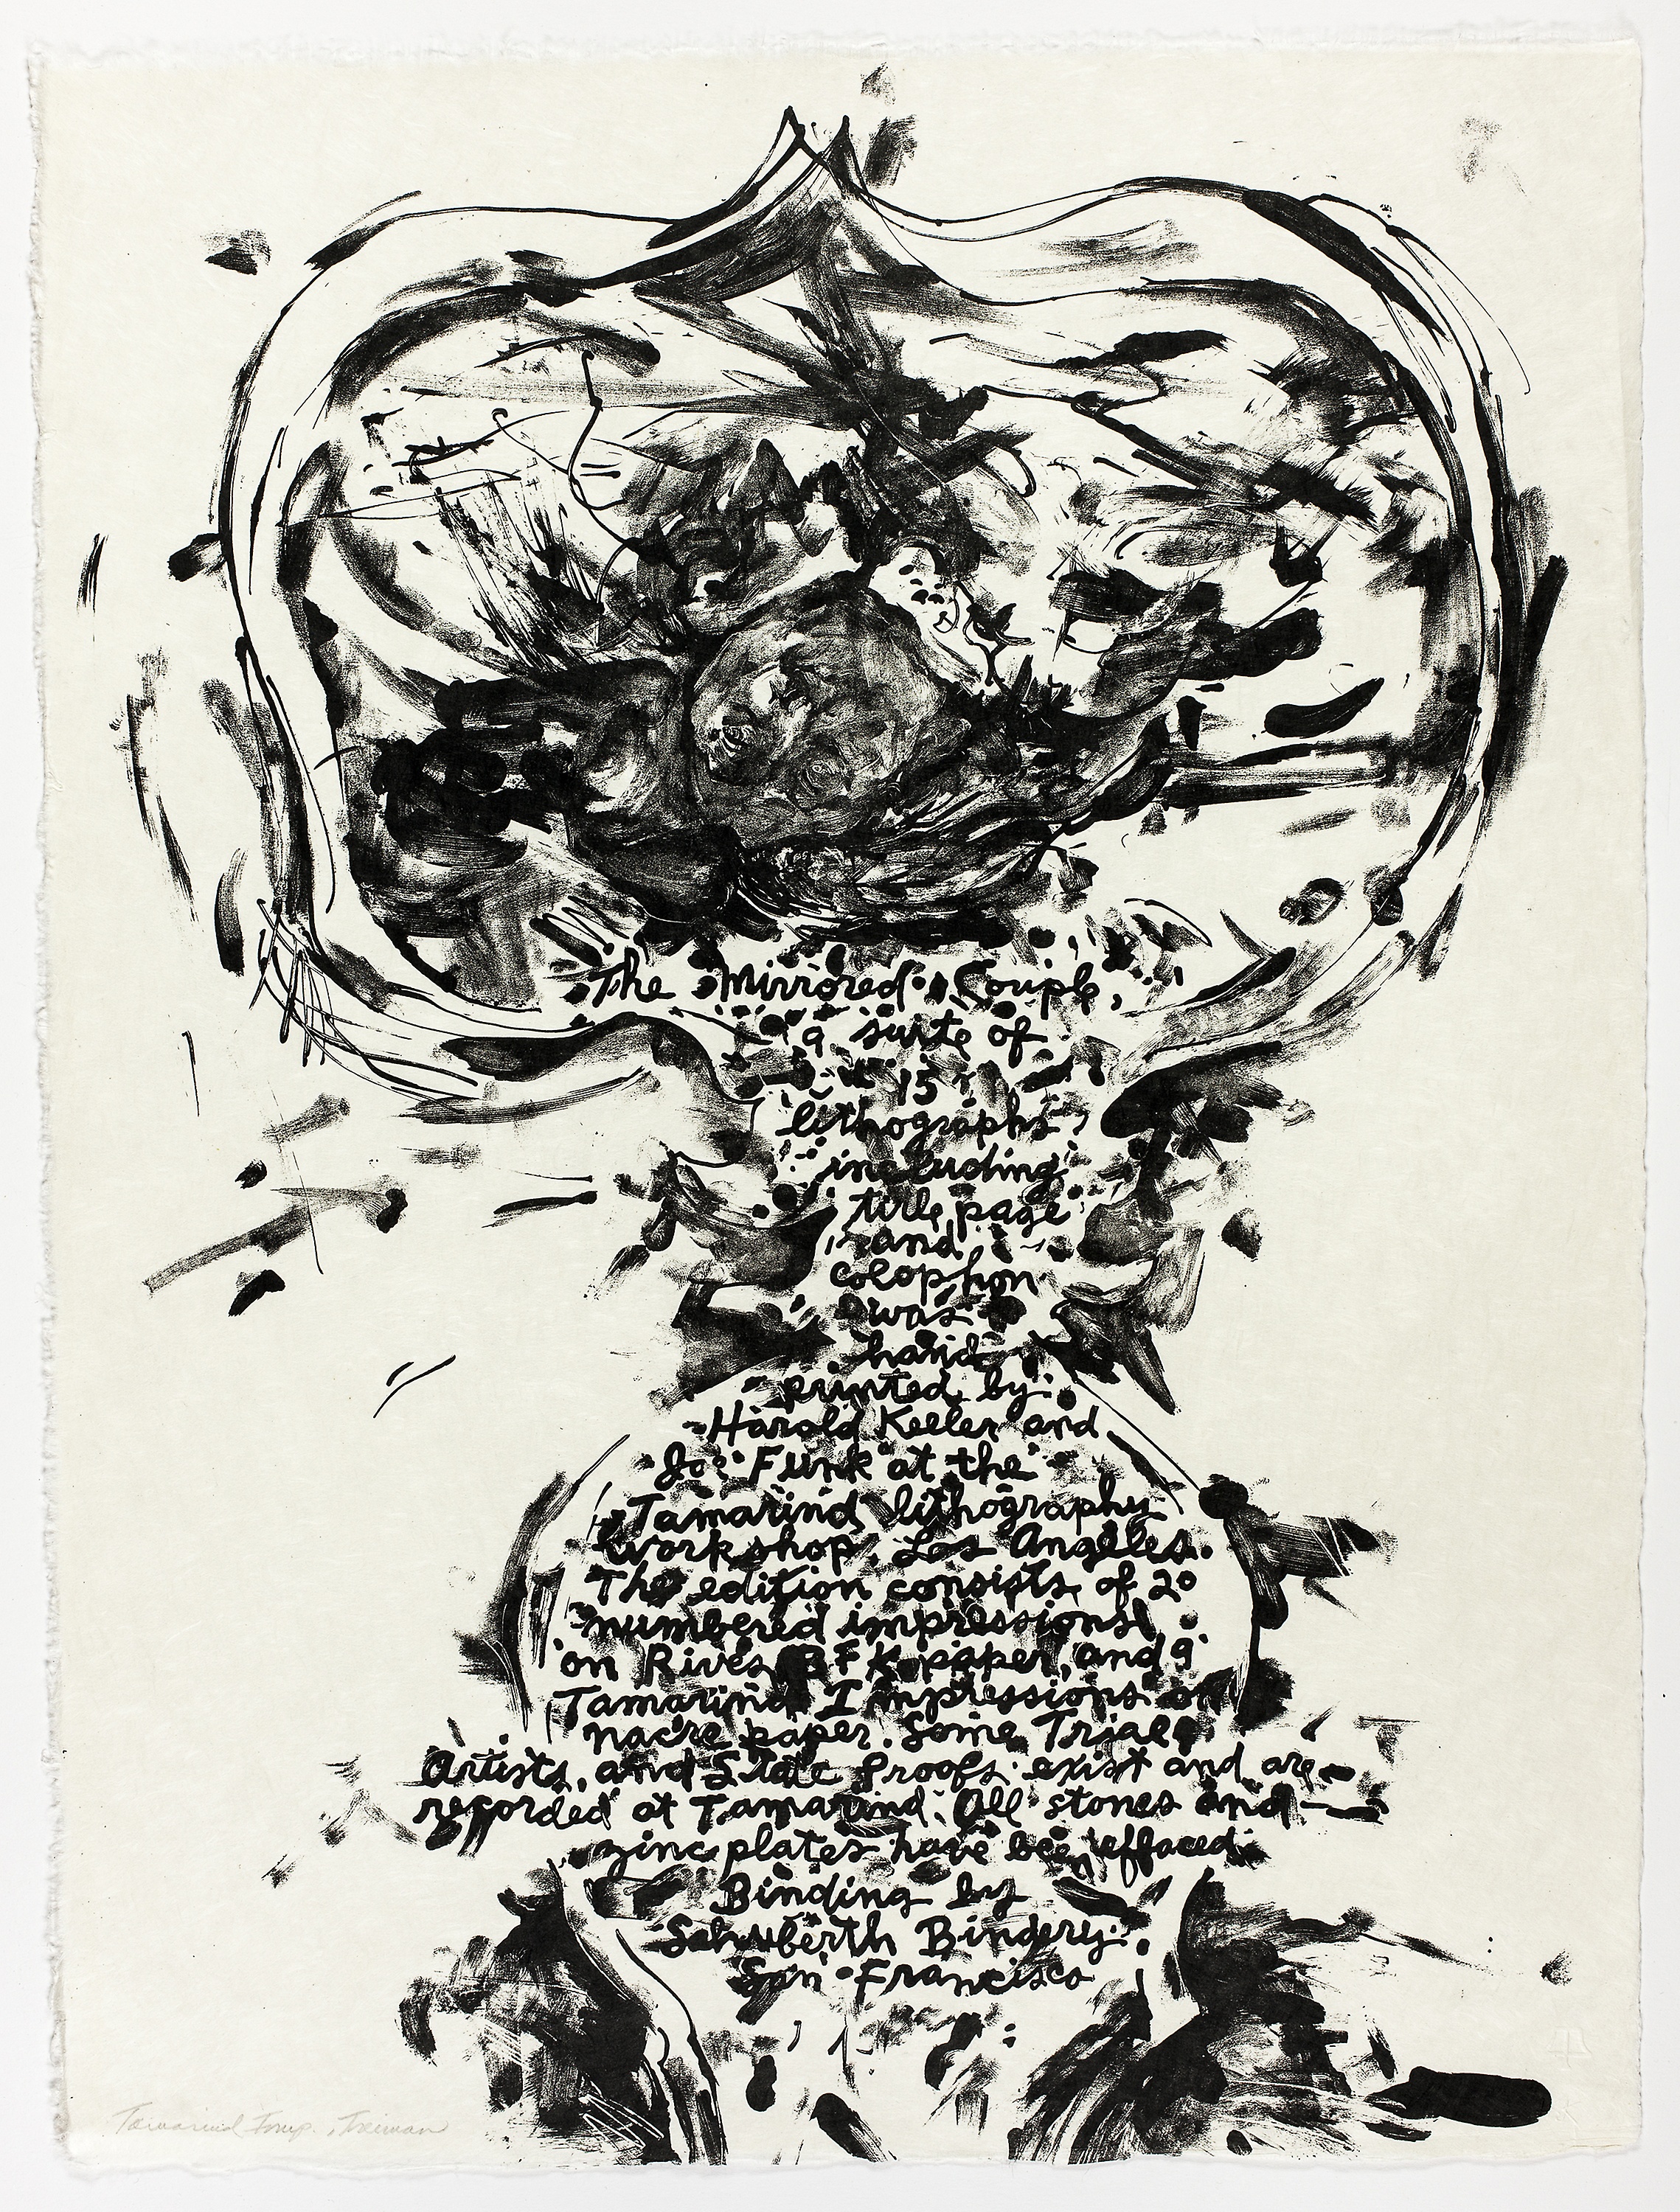 The Mirrored Couple,
a suite of
15
lithographs
including
title page
and
colophon
was
hand
printed by
Harold Keeler and
Joe Funk at the
Tamarind lithography
workshop, Los Angeles.
The edition consists of 20
numbered impressions
on Rives BFK paper, and 9
Tamarind Impressions on
nacre paper. Some Trial,
Artists, and State Proofs exist and are
recorded at Tamarind. All stones and
zinc plates have been effaced.
Binding by
Schuberth Bindery
San Francisco
Tamarind Imp. Treiman